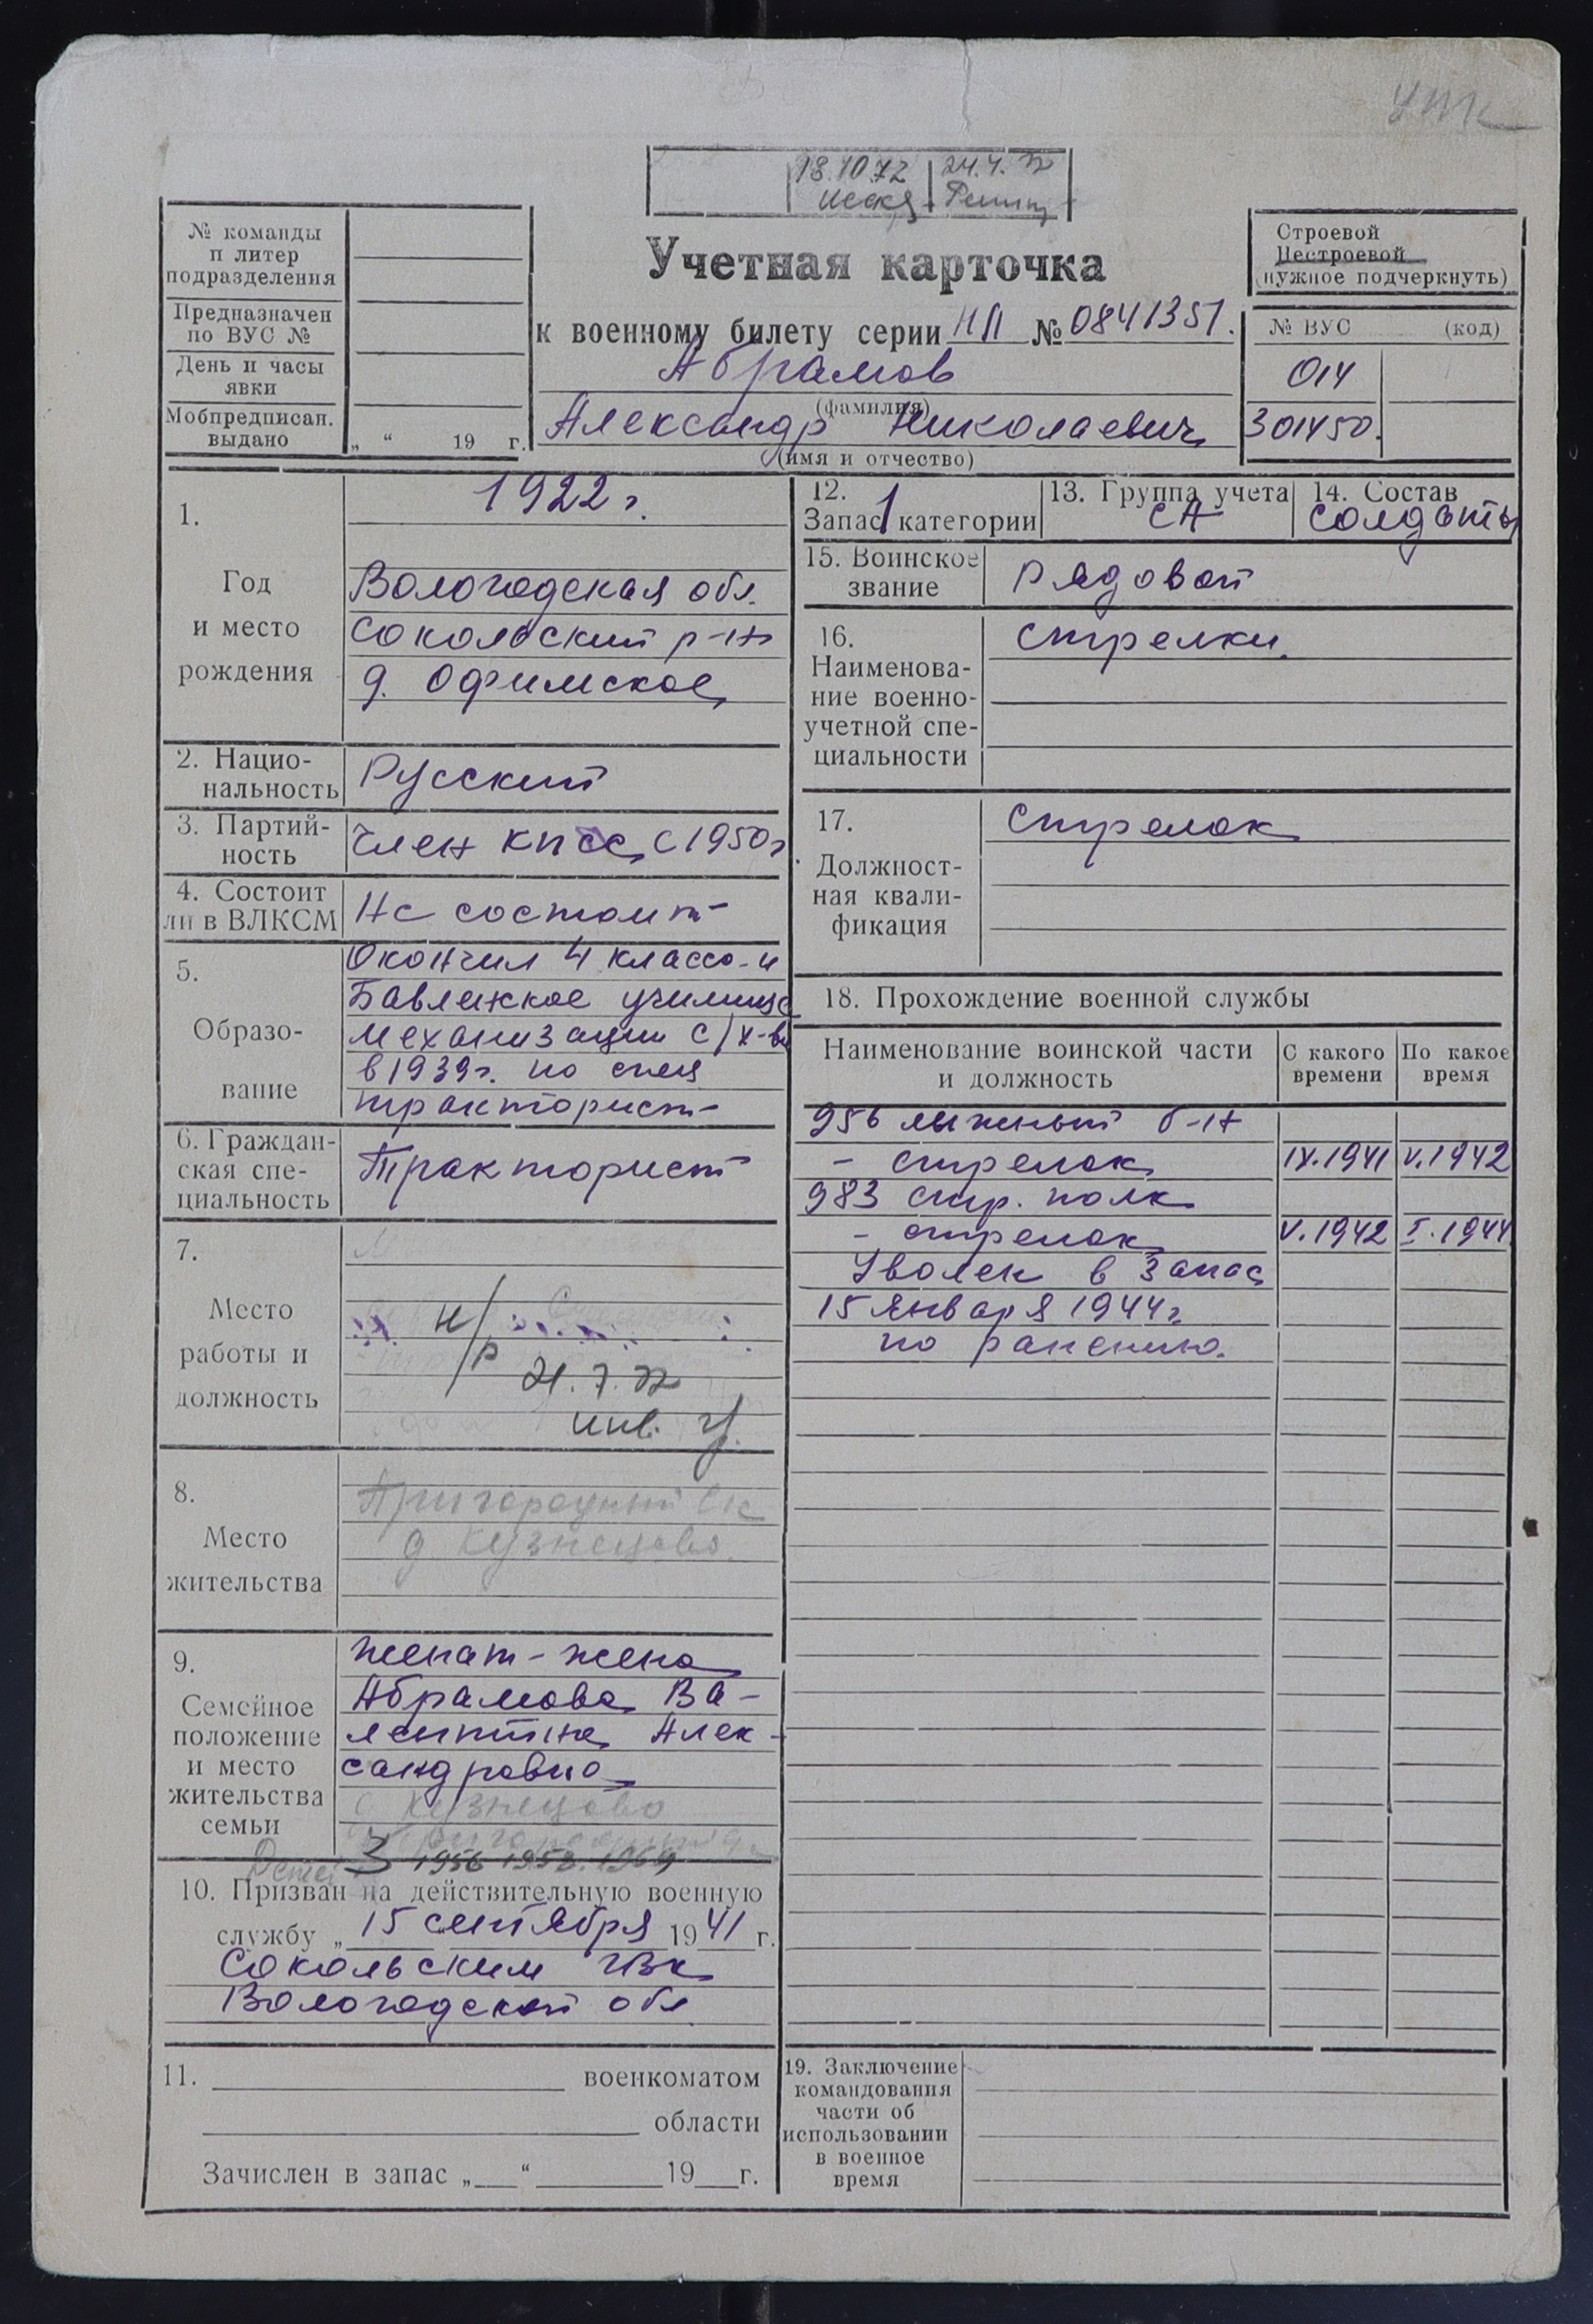 УПК
18.10.72 24.4.72
№ команды
и литер
подразделения
Предназначен
по ВУС №
День и часы
явки
Мобпредписан.
выдано „ “ 19 г.
Учетная карточка
к военному билету серии НП № 0841351.
Абрамов
(фамилия)
Александр Николаевич
(имя и отчество)
Строевой
Нестроевой
(нужное подчеркнуть)
№ ВУС (код)
014
301450.
1. Год и место рождения
1922 г.
Вологодская обл.
Сокольский р-н
д. Офимское
2. Нацио-
нальность
Русский
3. Партий-
ность
Член КПСС с 1950 г.
4. Состоит
ли в ВЛКСМ
Не состоит
5. Образо-
вание
Окончил 4 класса и
училище
механизации с/х-ва
в 1939 г. по спец
тракторист
6. Граждан-
ская спе-
циальность
Тракторист
7.
Место
работы и
должность
н/р
21.7.72
инв. гр.
8.
Место
жительства
Пригородный с/с
д Кузнецово
9.
Семейное
положение
и место
жительства
семьи
Женат - жена
Абрамова Ва-
лентина Алек-
сандровна
д Кузнецово
Детей 3 1956 1958. 1964
10. Призван на действительную военную
службу „ 15 сентября 1941 г.
Сокольским ГВК
Вологодской обл
11. военкоматом
области
Зачислен в запас „ “ 19 г.
12.
Запас 1 категории
13. Группа учета
СА
14. Состав
солдаты
15. Воинское
звание
Рядовой
16.
Наименова-
ние военно-
учетной спе-
циальности
Стрелки.
17.
Должност-
ная квали-
фикация
Стрелок
18. Прохождение военной службы
Наименование воинской части
и должность
С какого
времени
По какое
время
956 лыжный б-н
- стрелок IX.1941 V.1942
983 стр. полк
- стрелок V.1942 I.1944
Уволен в запас
15 января 1944 г.
по ранению.
19. Заключение
командования
части об
использовании
в военное
время